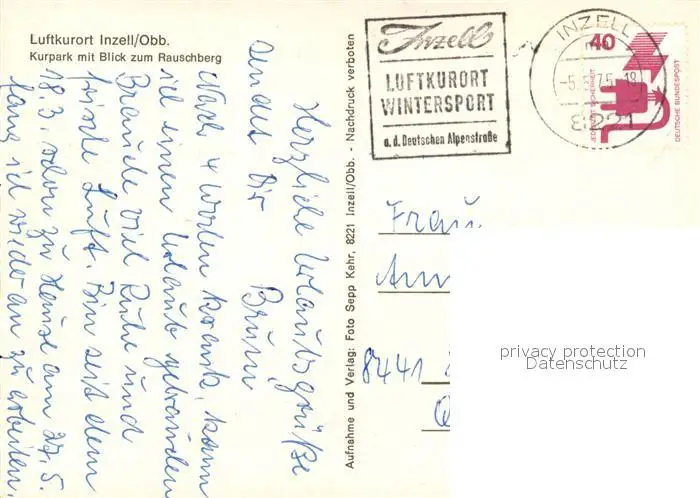 Luftkurort Inzell/Obb.
Kurpark mit Blick zum Rauschberg
Herzliche Urlaubsgrüße
sendet Dir Brüni
Nach 4 Wochen krank, kann
ich einen Urlaub gebrauchen
Brauche viel Ruhe und
frische Luft. Bin seit dem
18.3. schon zu Hause am 27.5.
fang ich wieder an zu arbeiten.
Aufnahme und Verlag: Foto Sepp Kehr, 8221 Inzell/Obb. - Nachdruck verboten
Inzell
LUFTKURORT
WINTERSPORT
a. d. Deutschen Alpenstraße
INZELL
75-18
8221
40
JEDERZEIT SICHERHEIT
DEUTSCHE BUNDESPOST
Frau
8441
privacy protection
Datenschutz